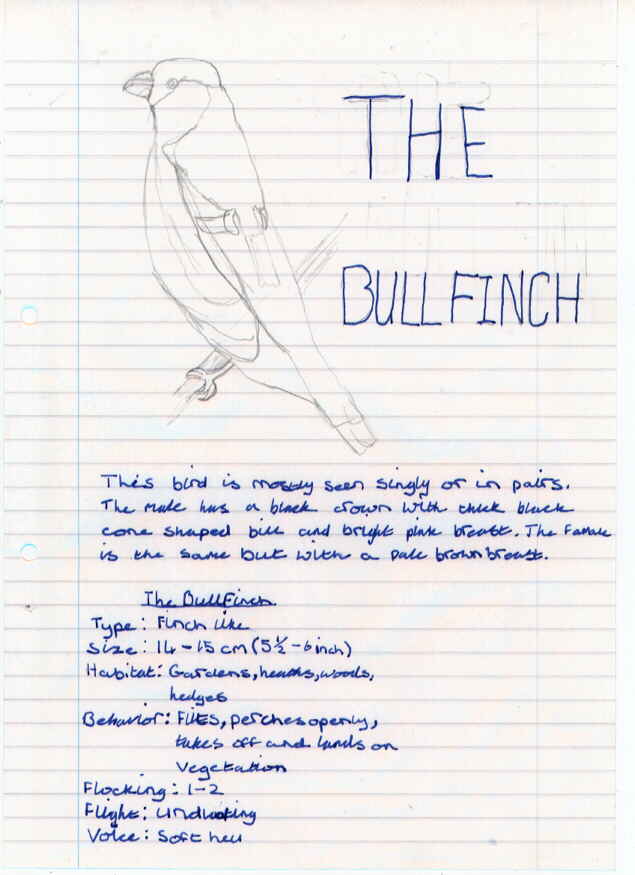 THE
BULLFINCH
This bird is mostly seen singly or in pairs.
The male has a black crown with thick black
cone shaped bill and bright pink breast. The Female
is the same but with a pale brown breast.
The BullFinch
Type: Finch like
Size: 14-15 cm (5½-6 inch)
Habitat: Gardens, heaths, woods,
hedges
Behavior: Flits, perches openly,
takes off and lands on
vegetation
Flocking: 1-2
Flight: undulating
Voice: Soft heu